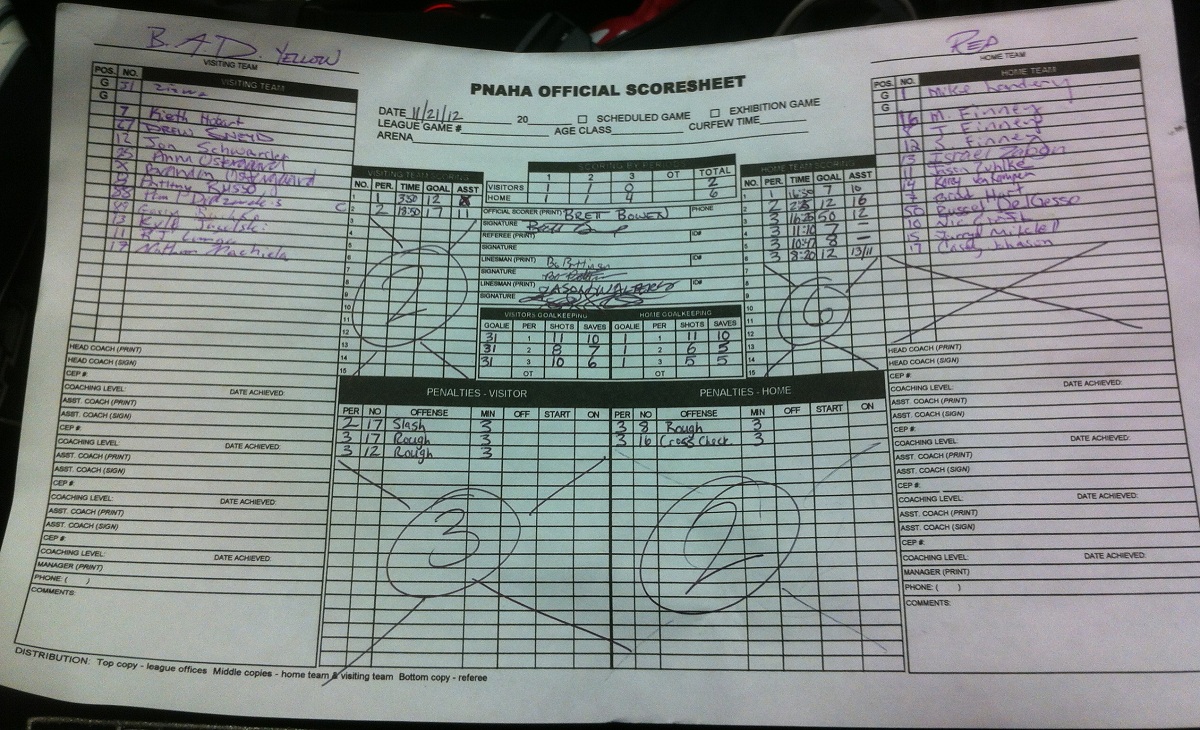 B.A.D. YELLOW
VISITING TEAM
RED
HOME TEAM
PNAHA OFFICIAL SCORESHEET
DATE 11/21/12 20 ☐ SCHEDULED GAME ☐ EXHIBITION GAME
LEAGUE GAME # AGE CLASS CURFEW TIME
ARENA
POS. NO. VISITING TEAM
G 31
G
7 Kieth Hobart
27 DREW SNEYD
12 Jon Schwarder
25 Anna
Brittany Russo
13 Kyle
11
17 Nathan Machiela
POS. NO. HOME TEAM
G 1 Mike
G
16 M. Finnery
8 J. Finnery
12 S. Finnery
13 Israel
11 Jason
14 Korey
7 Hart
50 Russel DelGesso
10
15 Mitchell
17 Casey Johnson
VISITING TEAM SCORING
NO. PER. TIME GOAL ASST
1 1 3:50 12 8
2 2 13:50 17 11
3
4
5
6
7
8
9
10
11
12
13
14
15
2
SCORING BY PERIOD
1 2 3 OT TOTAL
VISITORS 1 1 0 2
HOME 1 1 4 6
OFFICIAL SCORER (PRINT) BRETT BOWEN PHONE
SIGNATURE
REFEREE (PRINT) ID#
SIGNATURE
LINESMAN (PRINT) ID#
SIGNATURE
LINESMAN (PRINT) JASON WALBERG ID#
SIGNATURE
HOME TEAM SCORING
NO. PER. TIME GOAL ASST
1 1 7 16
2 2 12 16
3 3 16:25 50 12
4 3 11:10 7 —
5 3 10:47 8 —
6 3 8:20 12 13/11
7
8
9
10
11
12
13
14
15
6
VISITORS GOALKEEPING HOME GOALKEEPING
GOALIE PER SHOTS SAVES GOALIE PER SHOTS SAVES
31 1 11 10 1 1 11 10
31 2 8 7 1 2 6 5
31 3 10 6 1 3 5 5
OT OT
PENALTIES - VISITOR PENALTIES - HOME
PER NO OFFENSE MIN OFF START ON PER NO OFFENSE MIN OFF START ON
2 17 Slash 3 3 8 Rough 3
3 17 Rough 3 3 16 Cross Check 3
3 12 Rough 3
3 2
HEAD COACH (PRINT)
HEAD COACH (SIGN)
CEP #:
COACHING LEVEL: DATE ACHIEVED:
ASST. COACH (PRINT)
ASST. COACH (SIGN)
CEP #:
COACHING LEVEL: DATE ACHIEVED:
ASST. COACH (PRINT)
ASST. COACH (SIGN)
CEP #:
COACHING LEVEL: DATE ACHIEVED:
ASST. COACH (PRINT)
ASST. COACH (SIGN)
CEP #:
COACHING LEVEL: DATE ACHIEVED:
MANAGER (PRINT)
PHONE: ( )
COMMENTS:
HEAD COACH (PRINT)
HEAD COACH (SIGN)
CEP #:
COACHING LEVEL: DATE ACHIEVED:
ASST. COACH (PRINT)
ASST. COACH (SIGN)
CEP #:
COACHING LEVEL: DATE ACHIEVED:
ASST. COACH (PRINT)
ASST. COACH (SIGN)
CEP #:
COACHING LEVEL: DATE ACHIEVED:
ASST. COACH (PRINT)
ASST. COACH (SIGN)
CEP #:
COACHING LEVEL: DATE ACHIEVED:
MANAGER (PRINT)
PHONE: ( )
COMMENTS:
DISTRIBUTION: Top copy - league offices Middle copies - home team & visiting team Bottom copy - referee